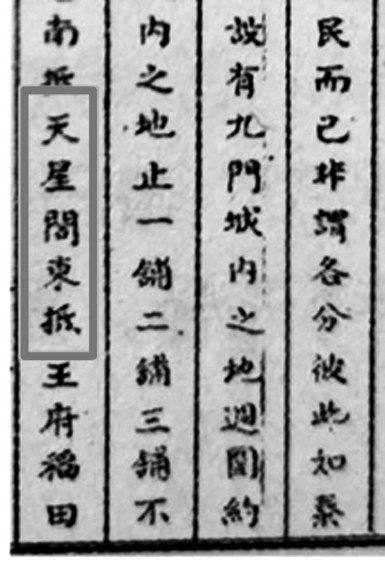 民而已非謂各分彼此如
設有九門城内之地週圍約
内之地止一舖二舖三舖不
南抵天星閣東抵王府稻田